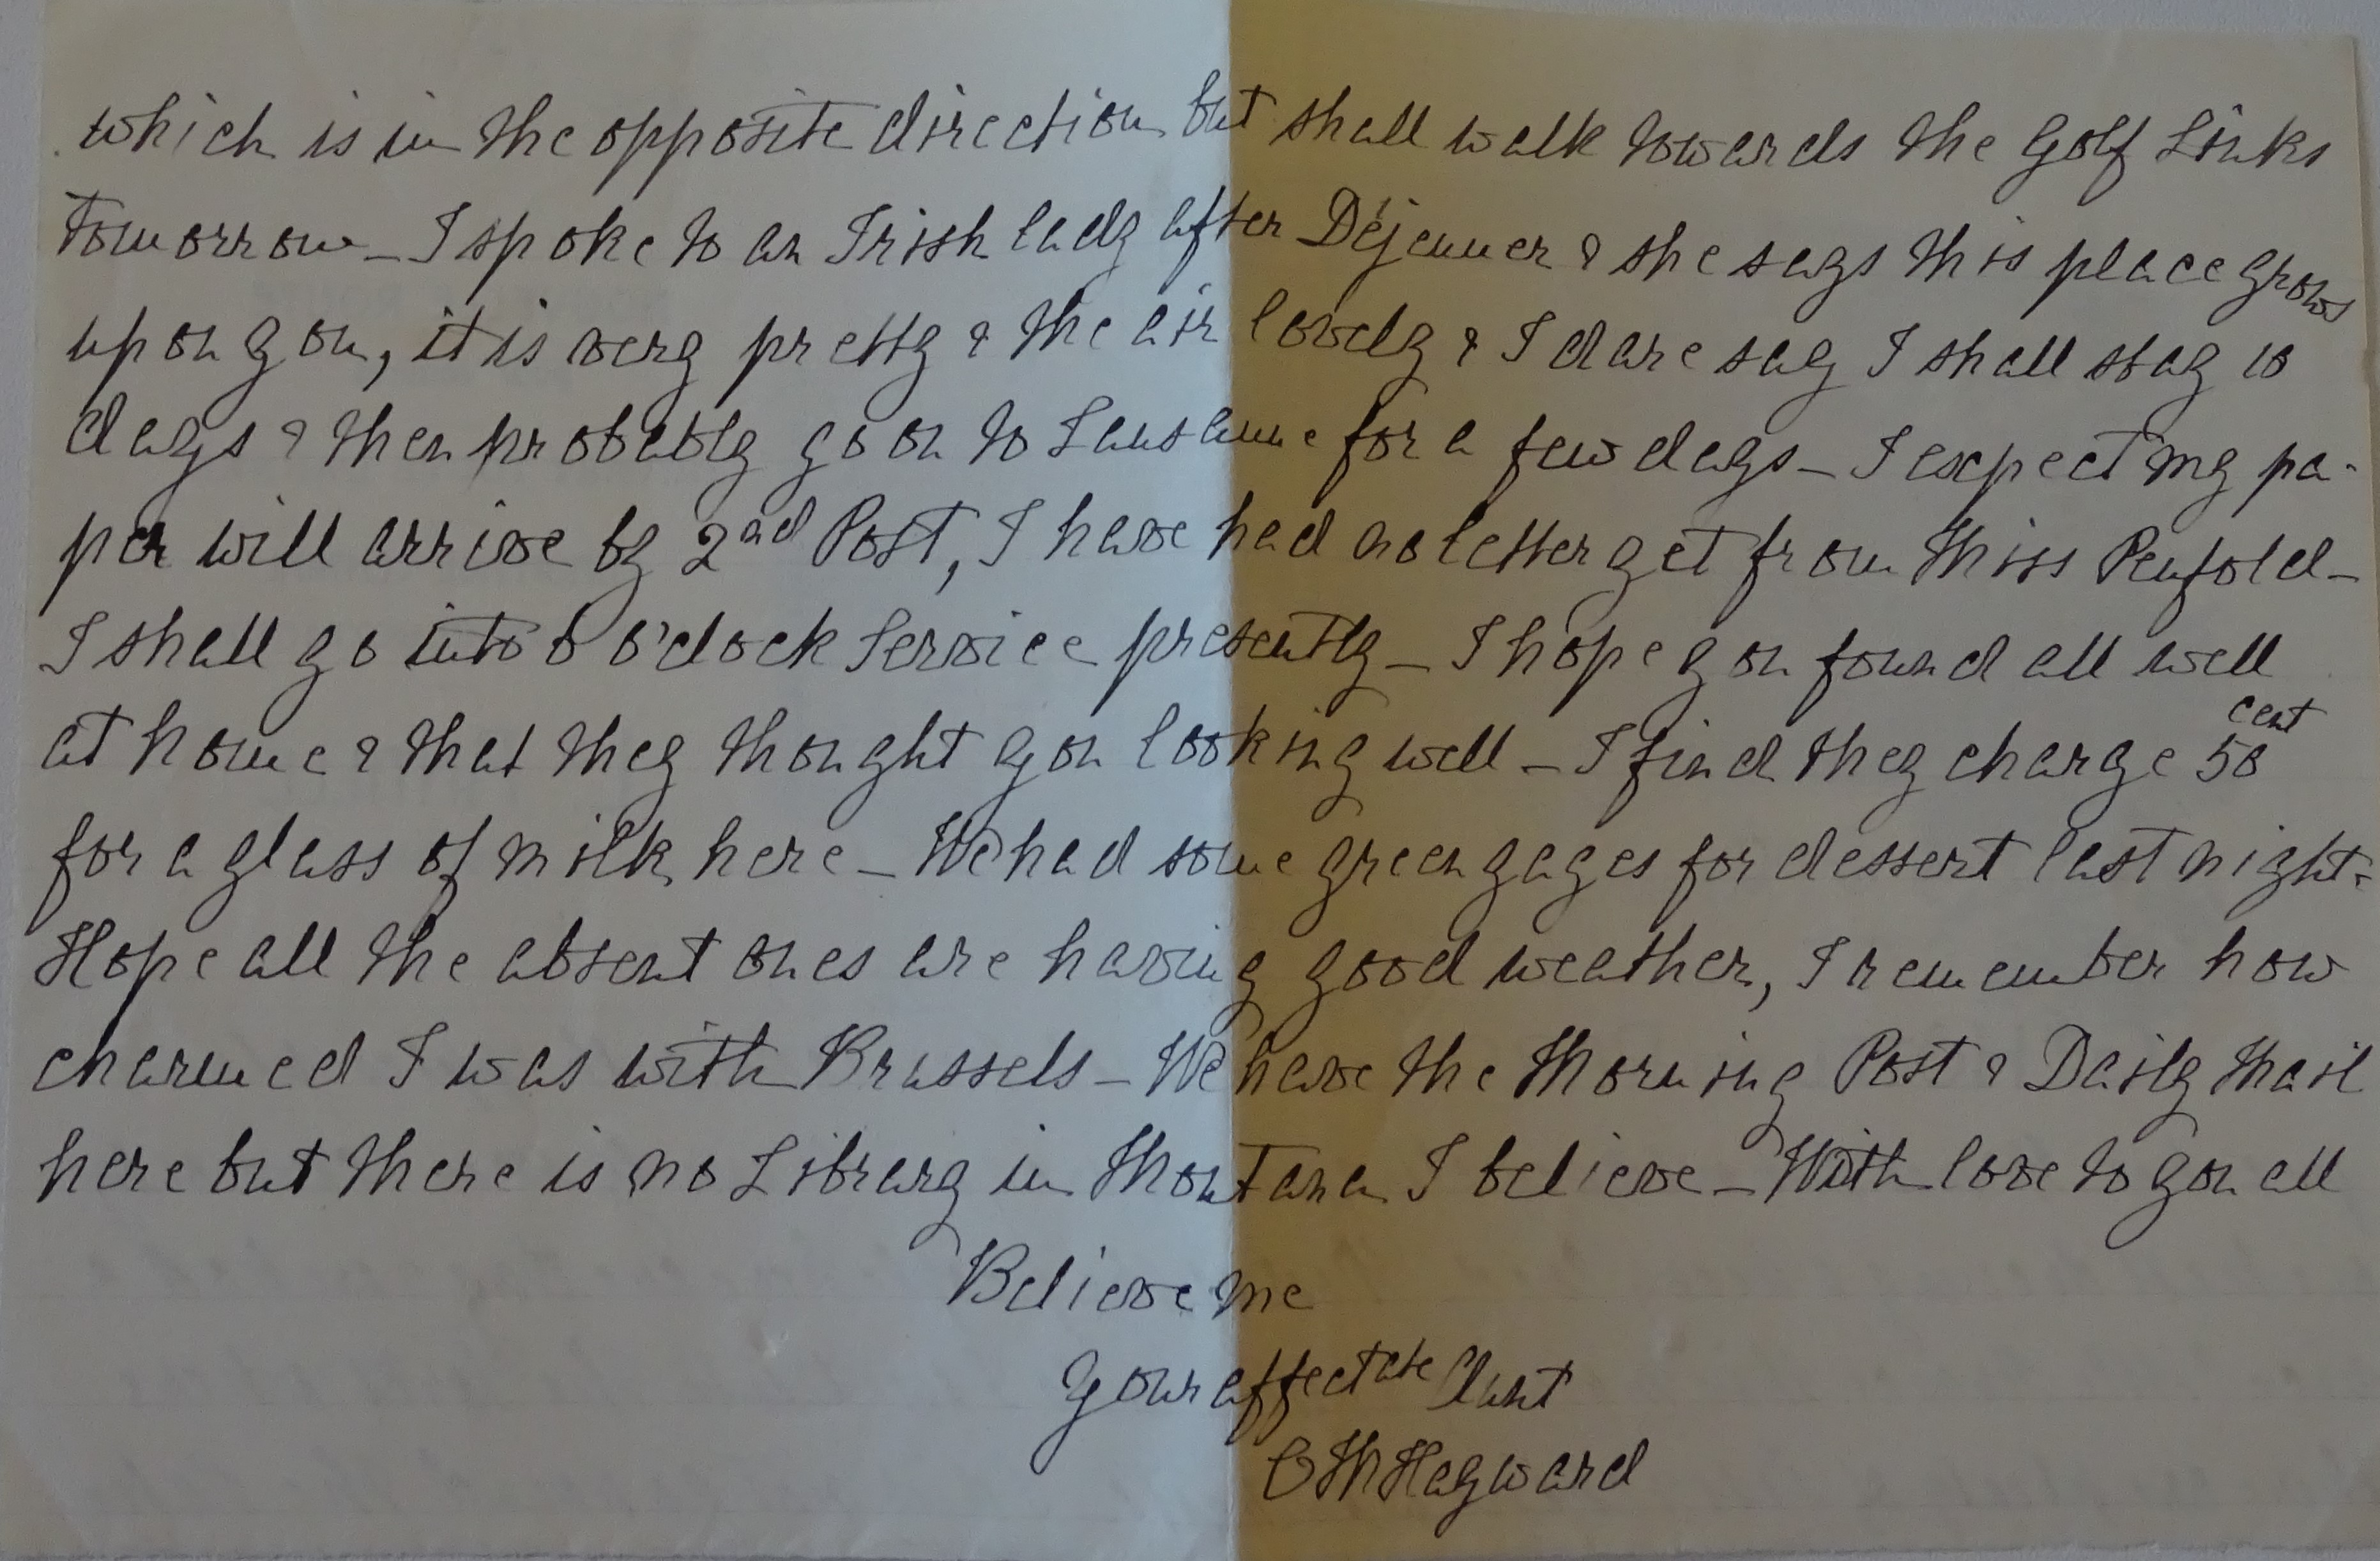 which is in the opposite direction but shall walk towards the Golf Links
tomorrow _ I spoke to an Irish lady after Déjeuner & she says this place grows
upon you, it is very pretty & the air lovely & I dare say I shall stay 10
days & then probably go on to Lausanne for a few days _ I expect my pa-
per will arrive by 2nd Post, I have had no letter yet from Miss Penfold _
I shall go into 6 o'clock Service presently _ I hope you found all well
at home & that they thought you looking well _ I find they charge 50 cent
for a glass of milk here _ We had some greengages for dessert last night-
Hope all the absent ones are having good weather, I remember how
charmed I was with Brussels _ We have the Morning Post & Daily Mail
here but there is no Library in Montana I believe _ With love to you all
Believe me
Your affectate Aunt
Hayward